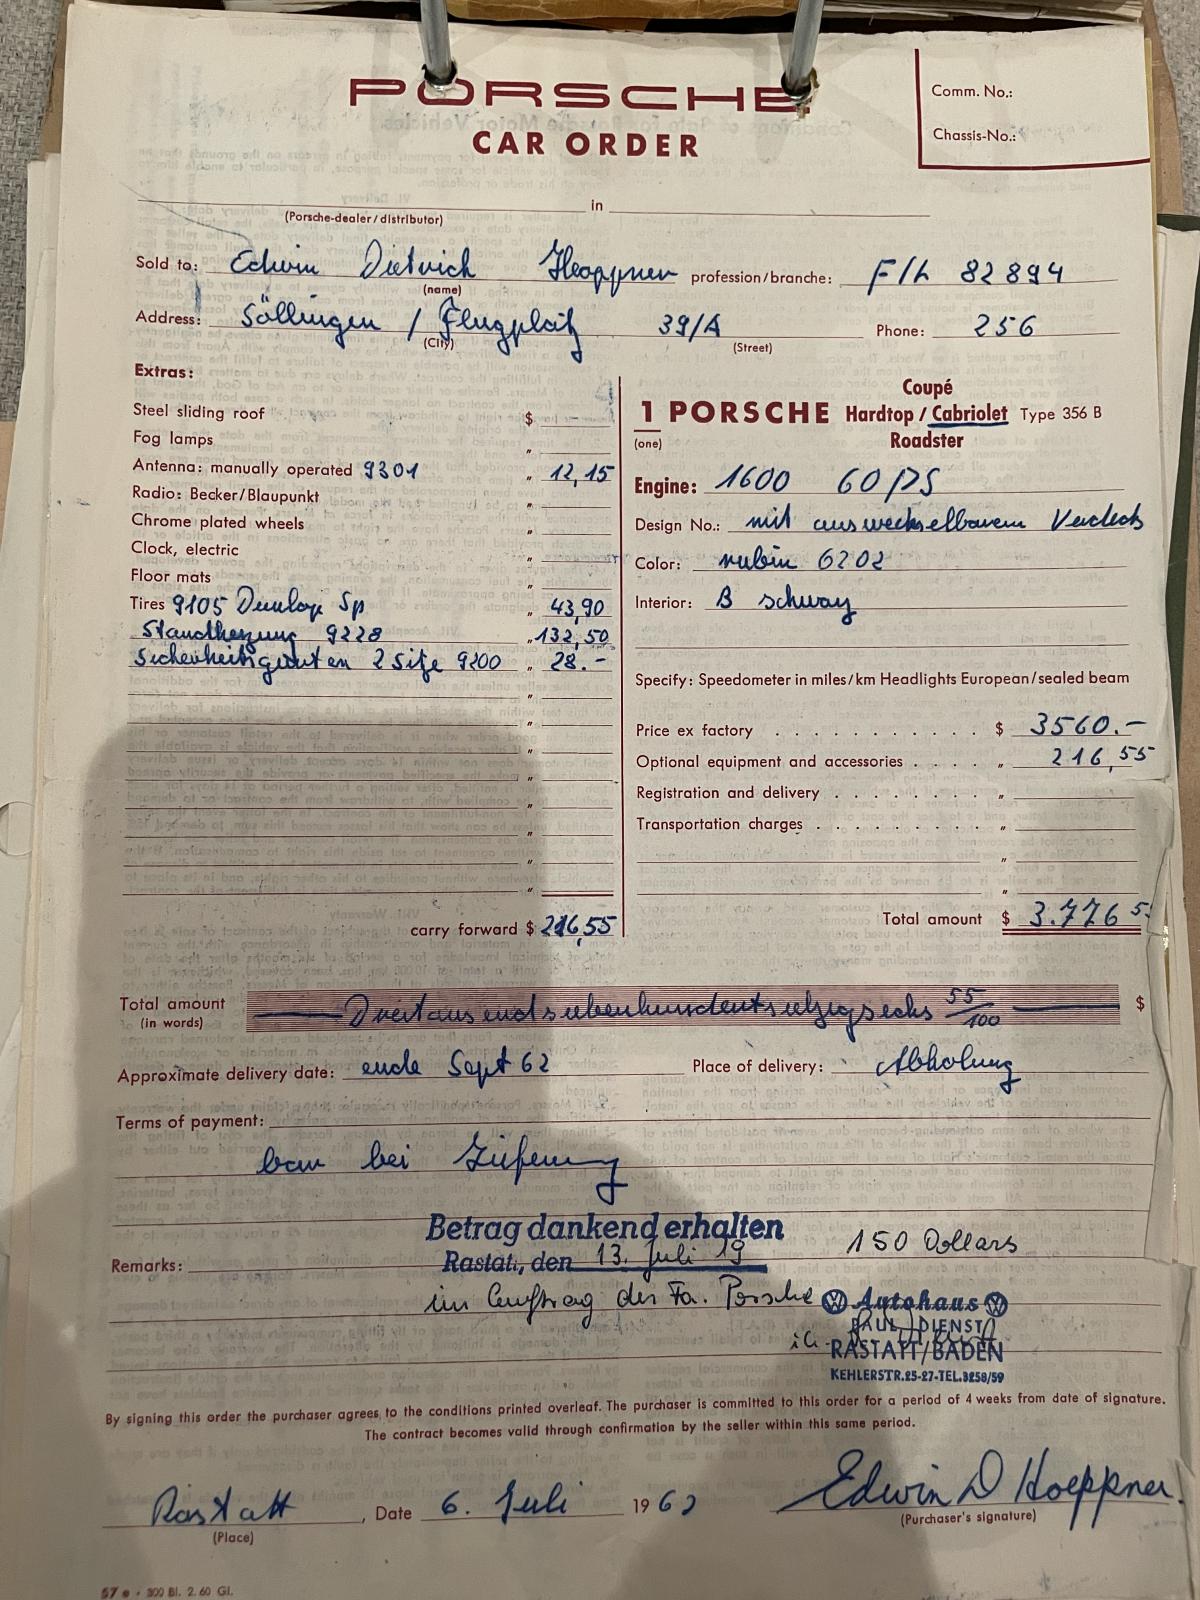 PORSCHE
CAR ORDER
Comm. No.:
Chassis-No.:
in
(Porsche-dealer/distributor)
Sold to: Edwin Dietrich Hoeppner profession/branche: F/Lt 82894
(name)
Address: Söllingen / Flugplatz 39/A Phone: 256
(City) (Street)
Extras:
Steel sliding roof $
Fog lamps "
Antenna: manually operated 9301 " 12,15
Radio: Becker/Blaupunkt "
Chrome plated wheels "
Clock, electric "
Floor mats "
Tires 9105 Dunlop Sp " 43,90
Standheizung 9228 " 132,50
Sicherheitsgurten 2 Sitze 9200 " 28.-
carry forward $ 216,55
1 PORSCHE Coupé
Hardtop / Cabriolet Type 356 B
(one) Roadster
Engine: 1600 60 PS
Design No.: mit auswechselbarem Verdeck
Color: rubin 6202
Interior: B schwarz
Specify: Speedometer in miles/km Headlights European/sealed beam
Price ex factory . . . . . . . . . . . $ 3560.-
Optional equipment and accessories . . . . " 216,55
Registration and delivery . . . . . . . . "
Transportation charges . . . . . . . . . "
Total amount $ 3.776 5
Total amount Dreitausendsiebenhundertsiebzigsechs 55/100 $
(in words)
Approximate delivery date: ende Sept 62 Place of delivery: Abholung
Terms of payment:
bar bei Lieferung
Betrag dankend erhalten 150 Dollars
Remarks: Rastatt, den 13. Juli 19
im Auftrag der Fa. Porsche Autohaus
PAUL DIENST
RASTATT/BADEN
KEHLERSTR.25-27-TEL.3258/59
By signing this order the purchaser agrees to the conditions printed overleaf. The purchaser is committed to this order for a period of 4 weeks from date of signature.
The contract becomes valid through confirmation by the seller within this same period.
Rastatt, Date 6. Juli 1962 Edwin D Hoeppner.
(Place) (Purchaser's signature)
57 e · 300 Bl. 2. 60 Gl.